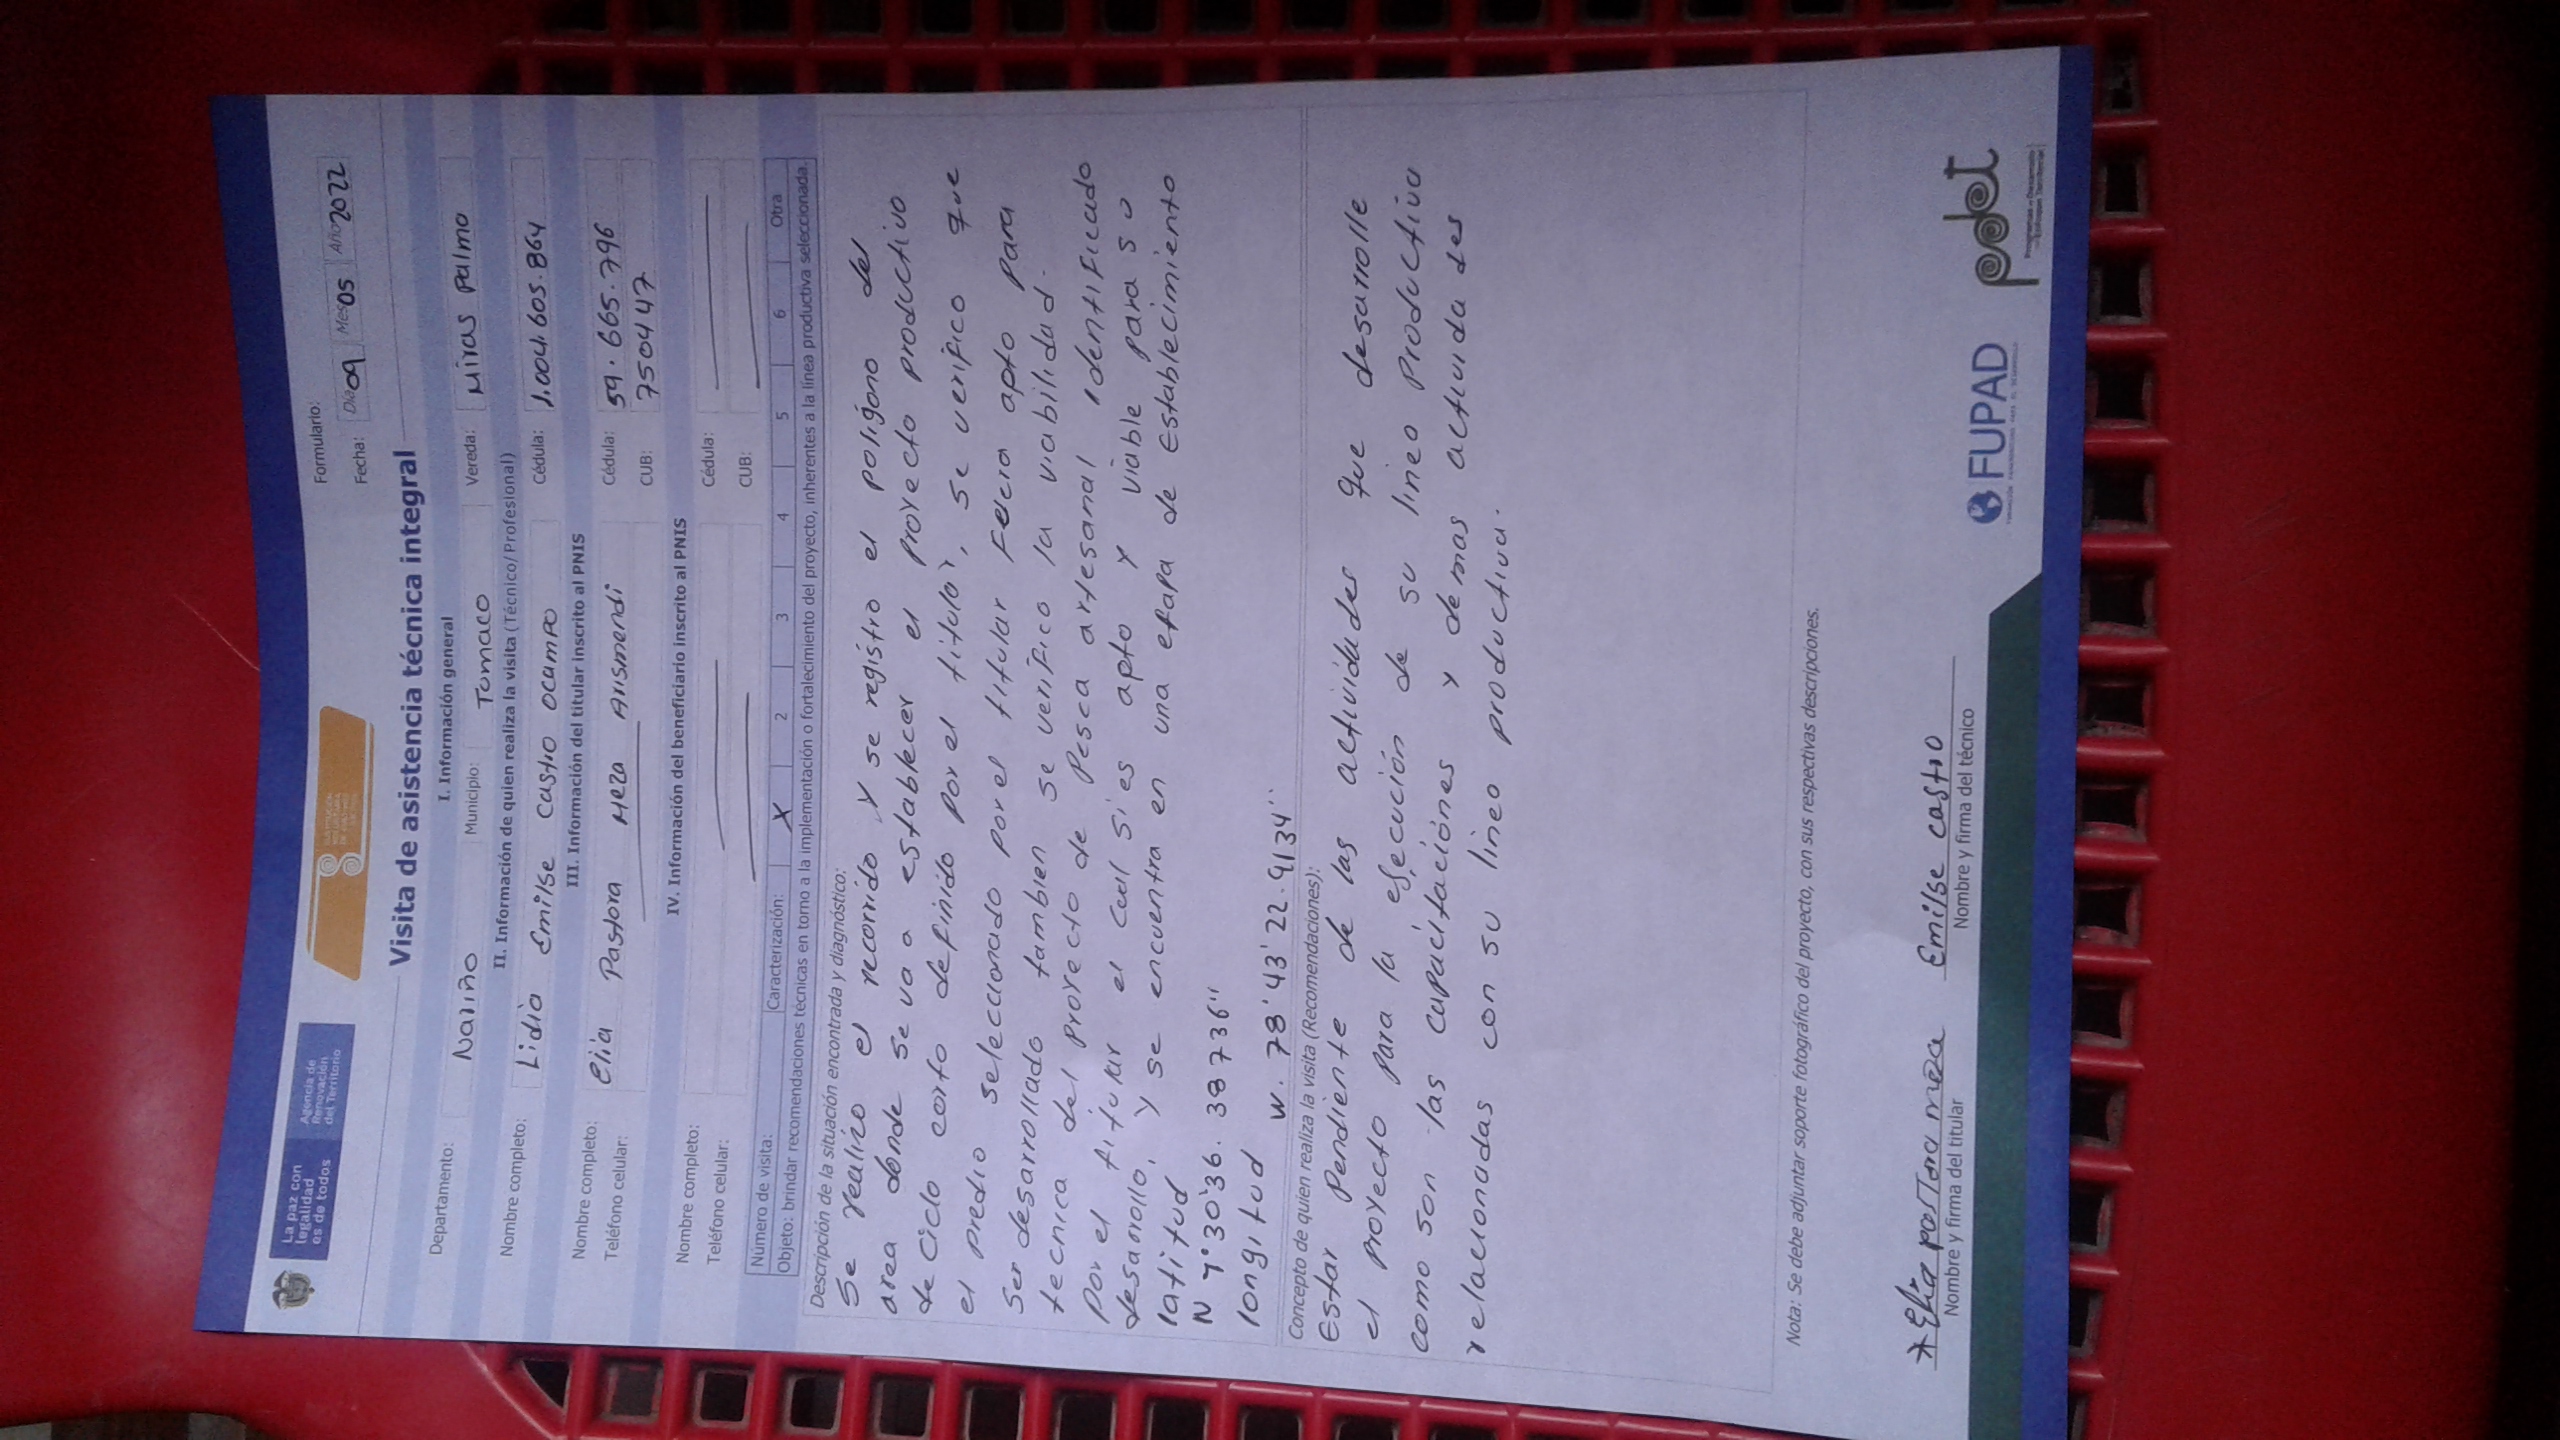 La paz con
legalidad
es de todos
Agencia de
Renovación
del Territorio
Formulario:
Fecha: Día 09 Mes 05 Año 2022
Visita de asistencia técnica integral
I. Información general
Departamento: Nariño Municipio: Tumaco Vereda: Miras Palmo
II. Información de quien realiza la visita (Técnico/Profesional)
Nombre completo: Lidia Emilse Castro Ocampo Cédula: 1.004.603.864
III. Información del titular inscrito al PNIS
Nombre completo: Elia Pastora Meza Arismendi Cédula: 59.665.796
Teléfono celular: CUB: 750447
IV. Información del beneficiario inscrito al PNIS
Nombre completo: Cédula:
Teléfono celular: CUB:
Número de visita: Caracterización: X 2 3 4 5 6 Otra
Objeto: brindar recomendaciones técnicas en torno a la implementación o fortalecimiento del proyecto, inherentes a la línea productiva seleccionada.
Descripción de la situación encontrada y diagnóstico:
Se realizo el recorrido y se registro el poligono del
area donde se va a establecer el proyecto productivo
de ciclo corto definido por el titular, se verifico que
el predio seleccionado por el titular fuera apto para
ser desarrollado tambien se verifico la viabilidad.
tecnica del proyecto de Pesca artesanal identificado
por el titular el cual si es apto y viable para su
desarrollo, y se encuentra en una etapa de establecimiento
latitud
N 1°30'36.38736"
longitud
W. 78'43'22.9134''
Concepto de quien realiza la visita (Recomendaciones):
Estar Pendiente de las actividades que desarrolle
el proyecto para la ejecución de su lineo productiva
como son las capacitaciónes y demas actiuida des
relacionadas con su lineo productiva.
Nota: Se debe adjuntar soporte fotográfico del proyecto, con sus respectivas descripciones.
* Elia pastora meza Emilse castro
Nombre y firma del titular Nombre y firma del técnico
FUPAD
pdet